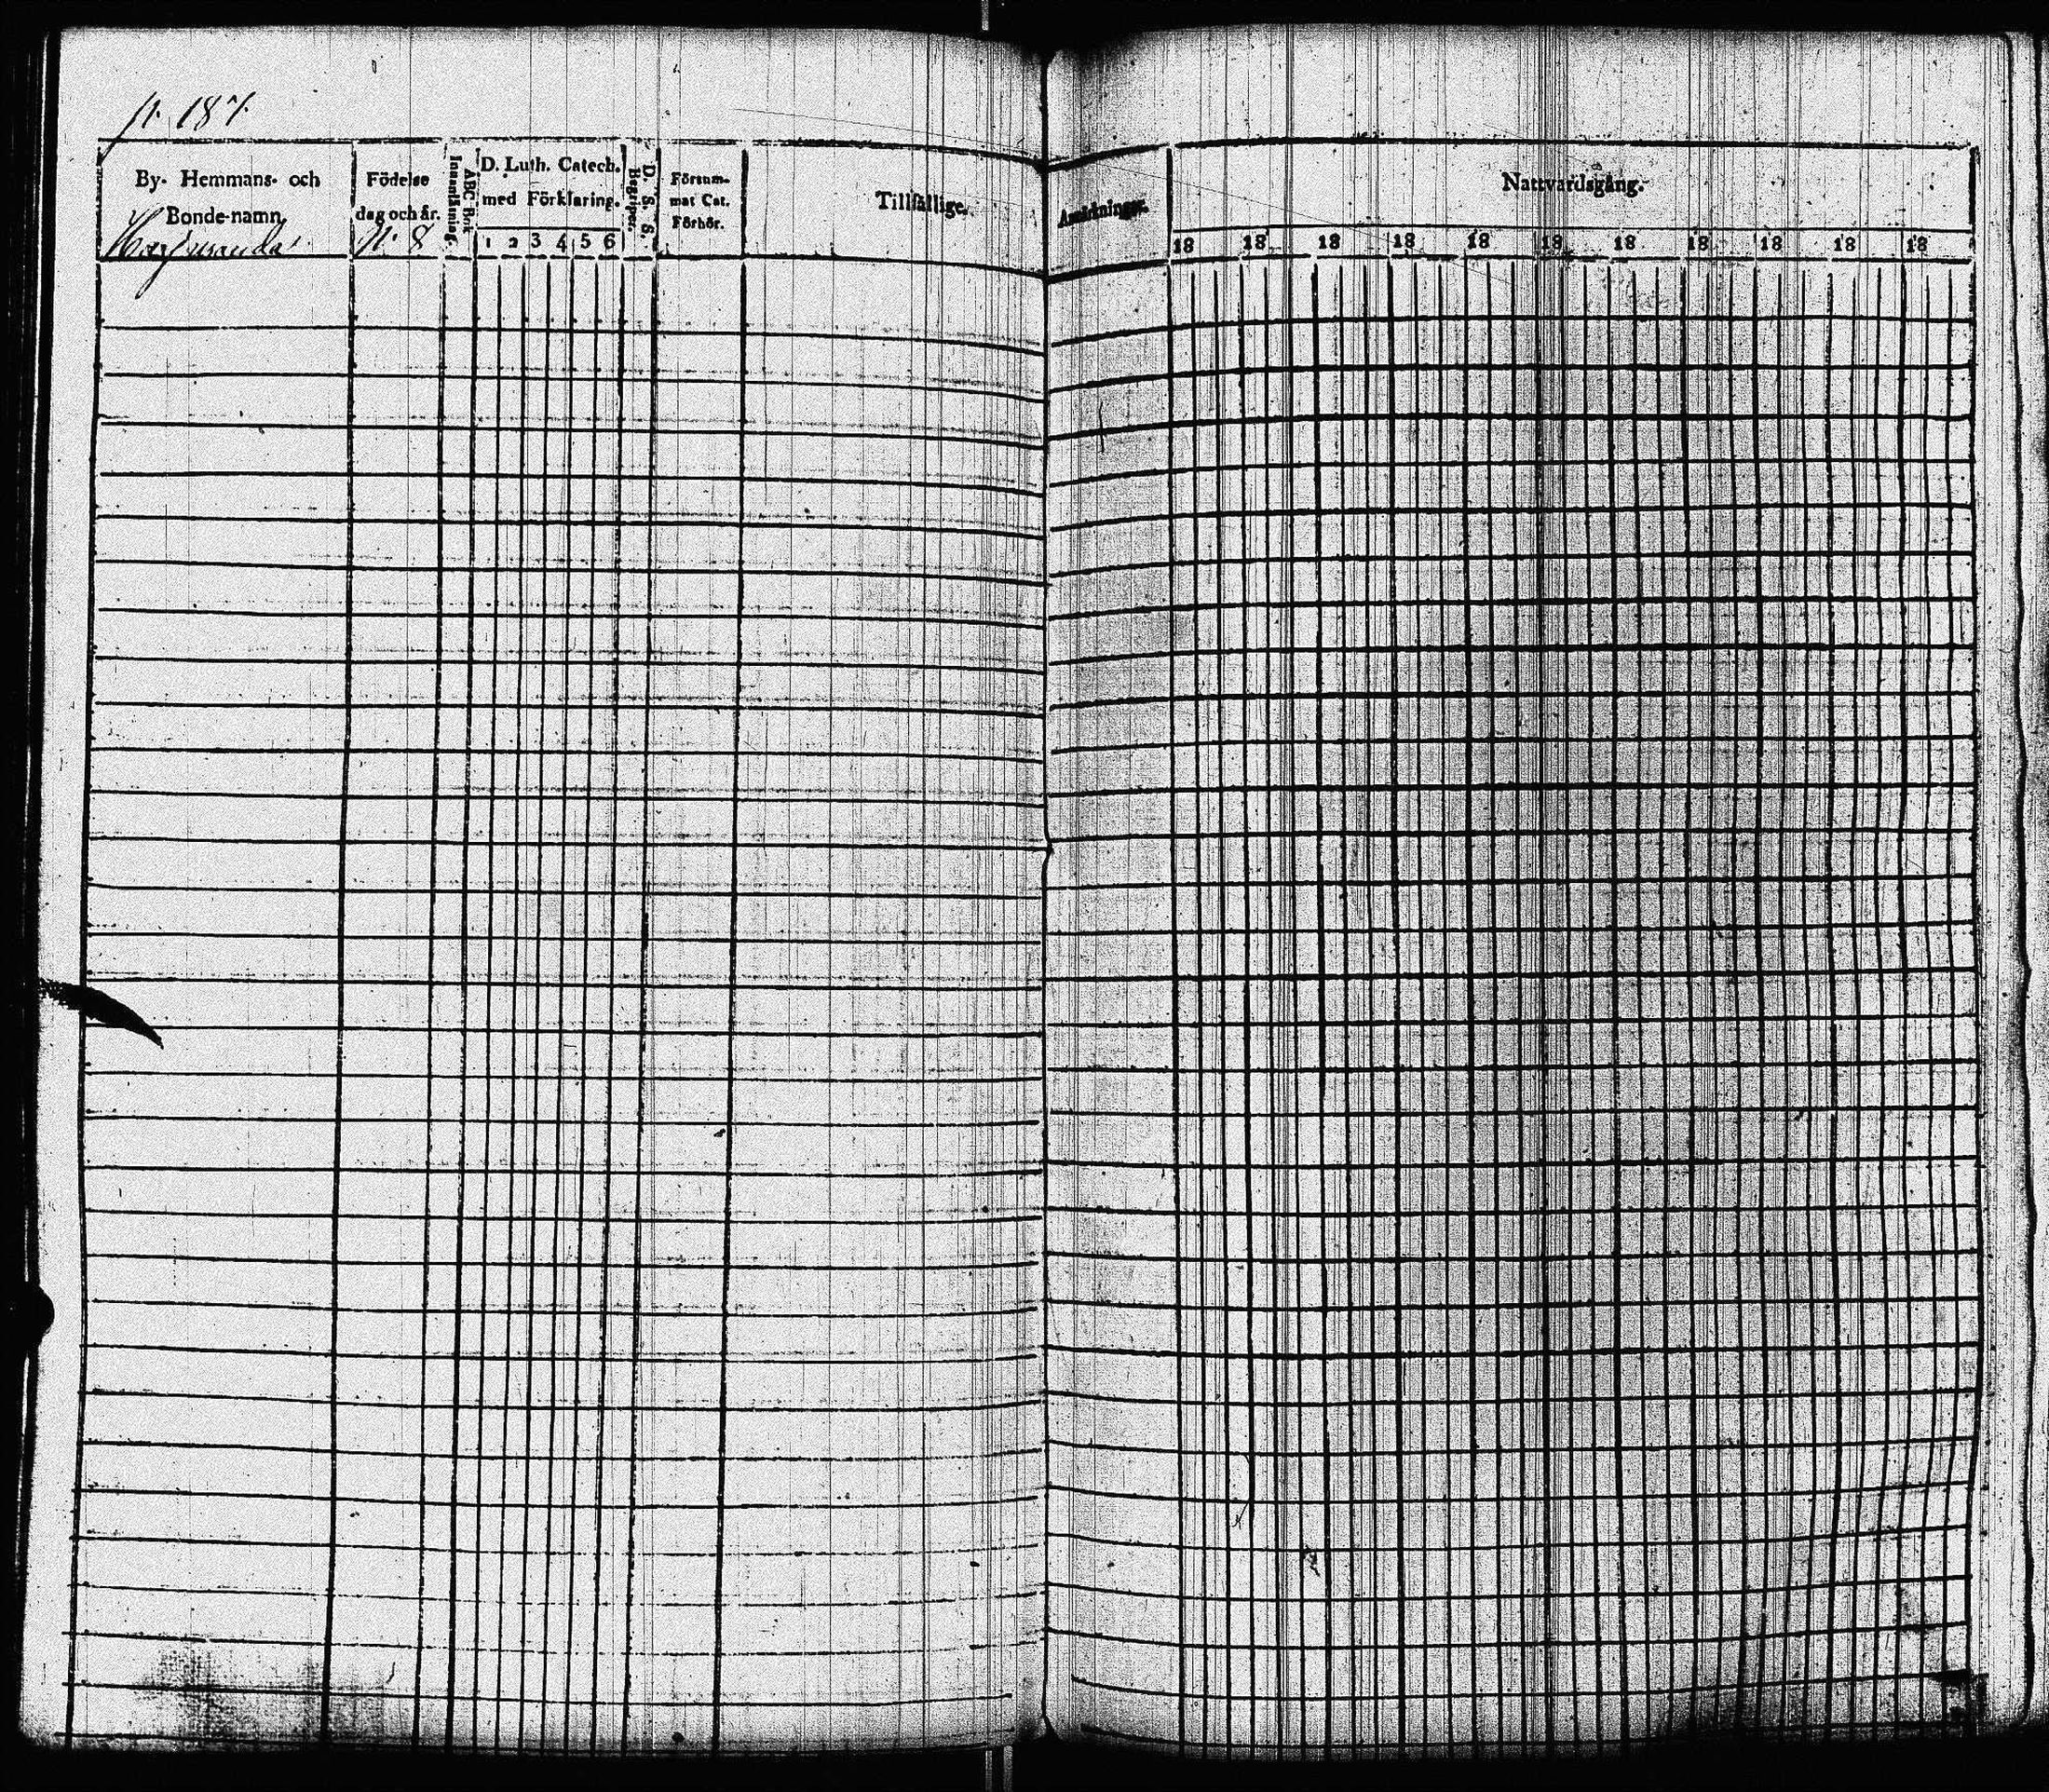 p. 187.
By- Hemmans- och
Bonde-namn
Födelse
dag och år.
N. 8
Innanläsning.
ABC Bok
D. Luth. Catech.
med Förklaring.
1 2 3 4 5 6
D. S. S.
Begriper.
Försum-
mat Cat.
Förhör.
Tillfällige
Anmärkningar.
Nattvardsgång.
18 18 18 18 18 18 18 18 18 18 18